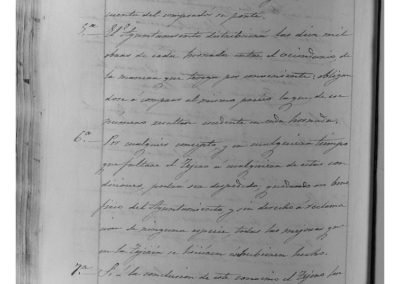 cuenta del comprador su porte.
5.ª El Ayuntamiento distribuirá las diez mil
obras de cada hornada entre el vecindario de
la manera que tenga por conveniente, obligan
dose a comprar al mismo precio la que, de ser
numeroso resultase sobrante en cada hornada.
6.ª Por cualquier concepto, y en cualquiera tiempo
que faltare el Tejero a cualquiera de estas con
diciones, podrá ser despedido, quedando en bene
ficio del Ayuntamiento y sin derecho a reclama
cion de ninguna especie todas las mejoras que
en la Tejería se hubiesen hecho.
7.ª Si a la conclusion de este convenio el Tejero hu